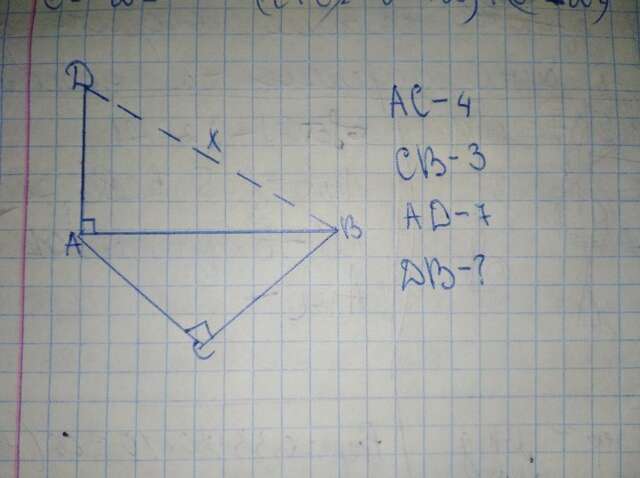 D
x
A
B
C
AC-4
CB-3
AD-7
DB-?